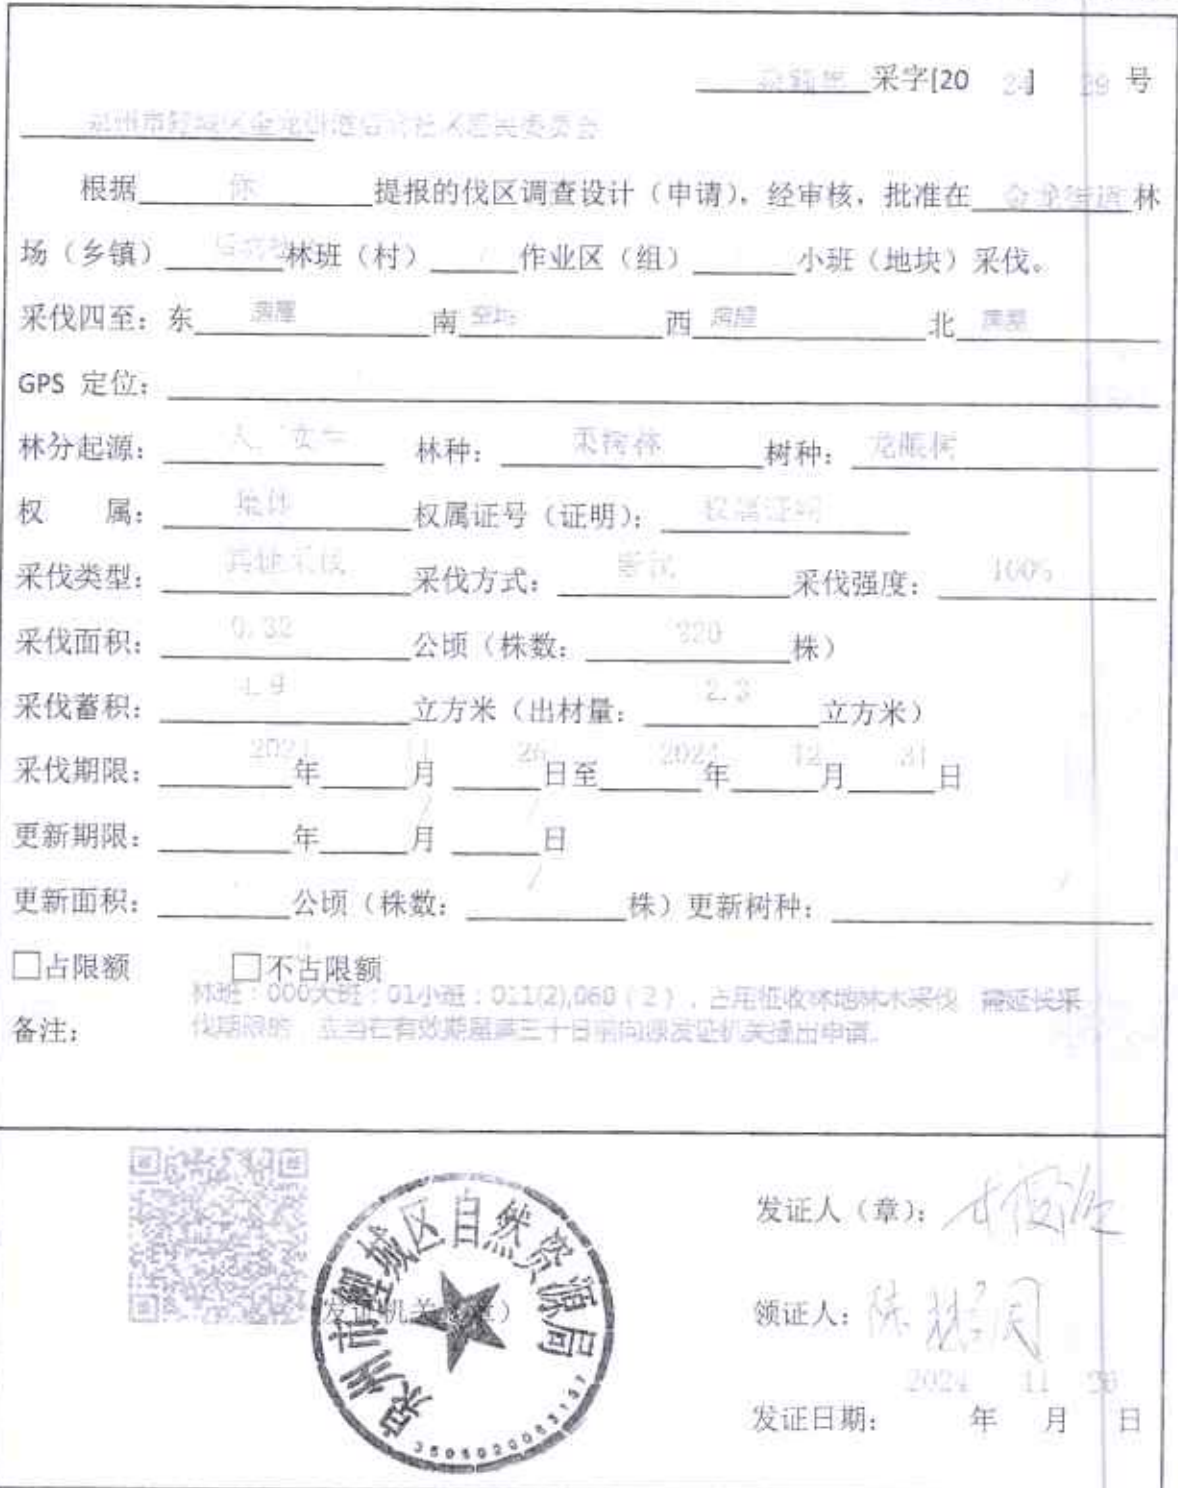 采字[20 24] 29 号
泉州市鲤城区金龙街道后坑社区居民委员会
根据 你 提报的伐区调查设计（申请），经审核，批准在 金龙街道 林
场（乡镇） 林班（村） / 作业区（组） 小班（地块）采伐。
采伐四至：东 房屋 南 空地 西 房屋 北
GPS 定位：
林分起源： 林种： 果树林 树种： 龙眼树
权 属： 集体 权属证号（证明）： 权属证明
采伐类型： 其他采伐 采伐方式： 皆伐 采伐强度： 100%
采伐面积： 0.32 公顷（株数： 220 株）
采伐蓄积： 4.9 立方米（出材量： 2.3 立方米）
采伐期限： 2024 年 11 月 26 日至 2024 年 12 月 31 日
更新期限： 年 / 月 / 日
更新面积： 公顷（株数： / 株）更新树种： /
□占限额 □不占限额
备注： 林班：000大班：01小班：011(2),060（2），占用征收林地林木采伐 需延长采
伐期限的，应当在有效期届满三十日前向原发证机关提出申请。
发证人（章）：
泉州市鲤城区自然资源局
发证机关（章）
领证人： 陈
2024 11 26
发证日期： 年 月 日